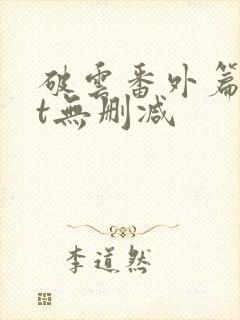 破雲番外篇
t無刪減
李道然